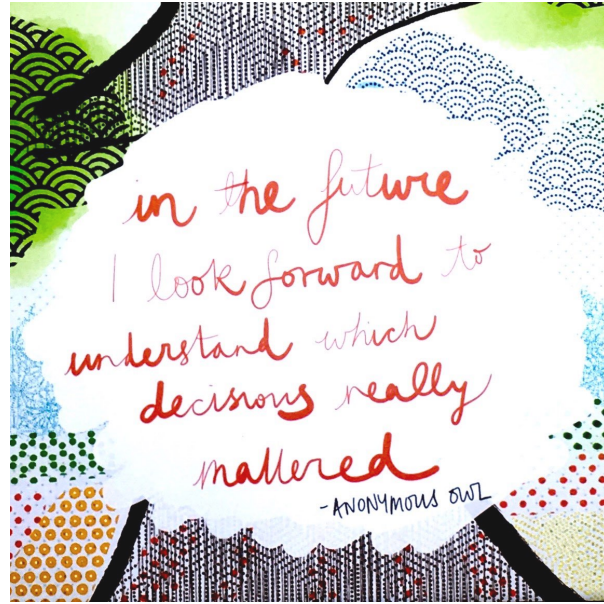 in the future
I look forward to
understand which
decisions really
mattered
-ANONYMOUS OWL